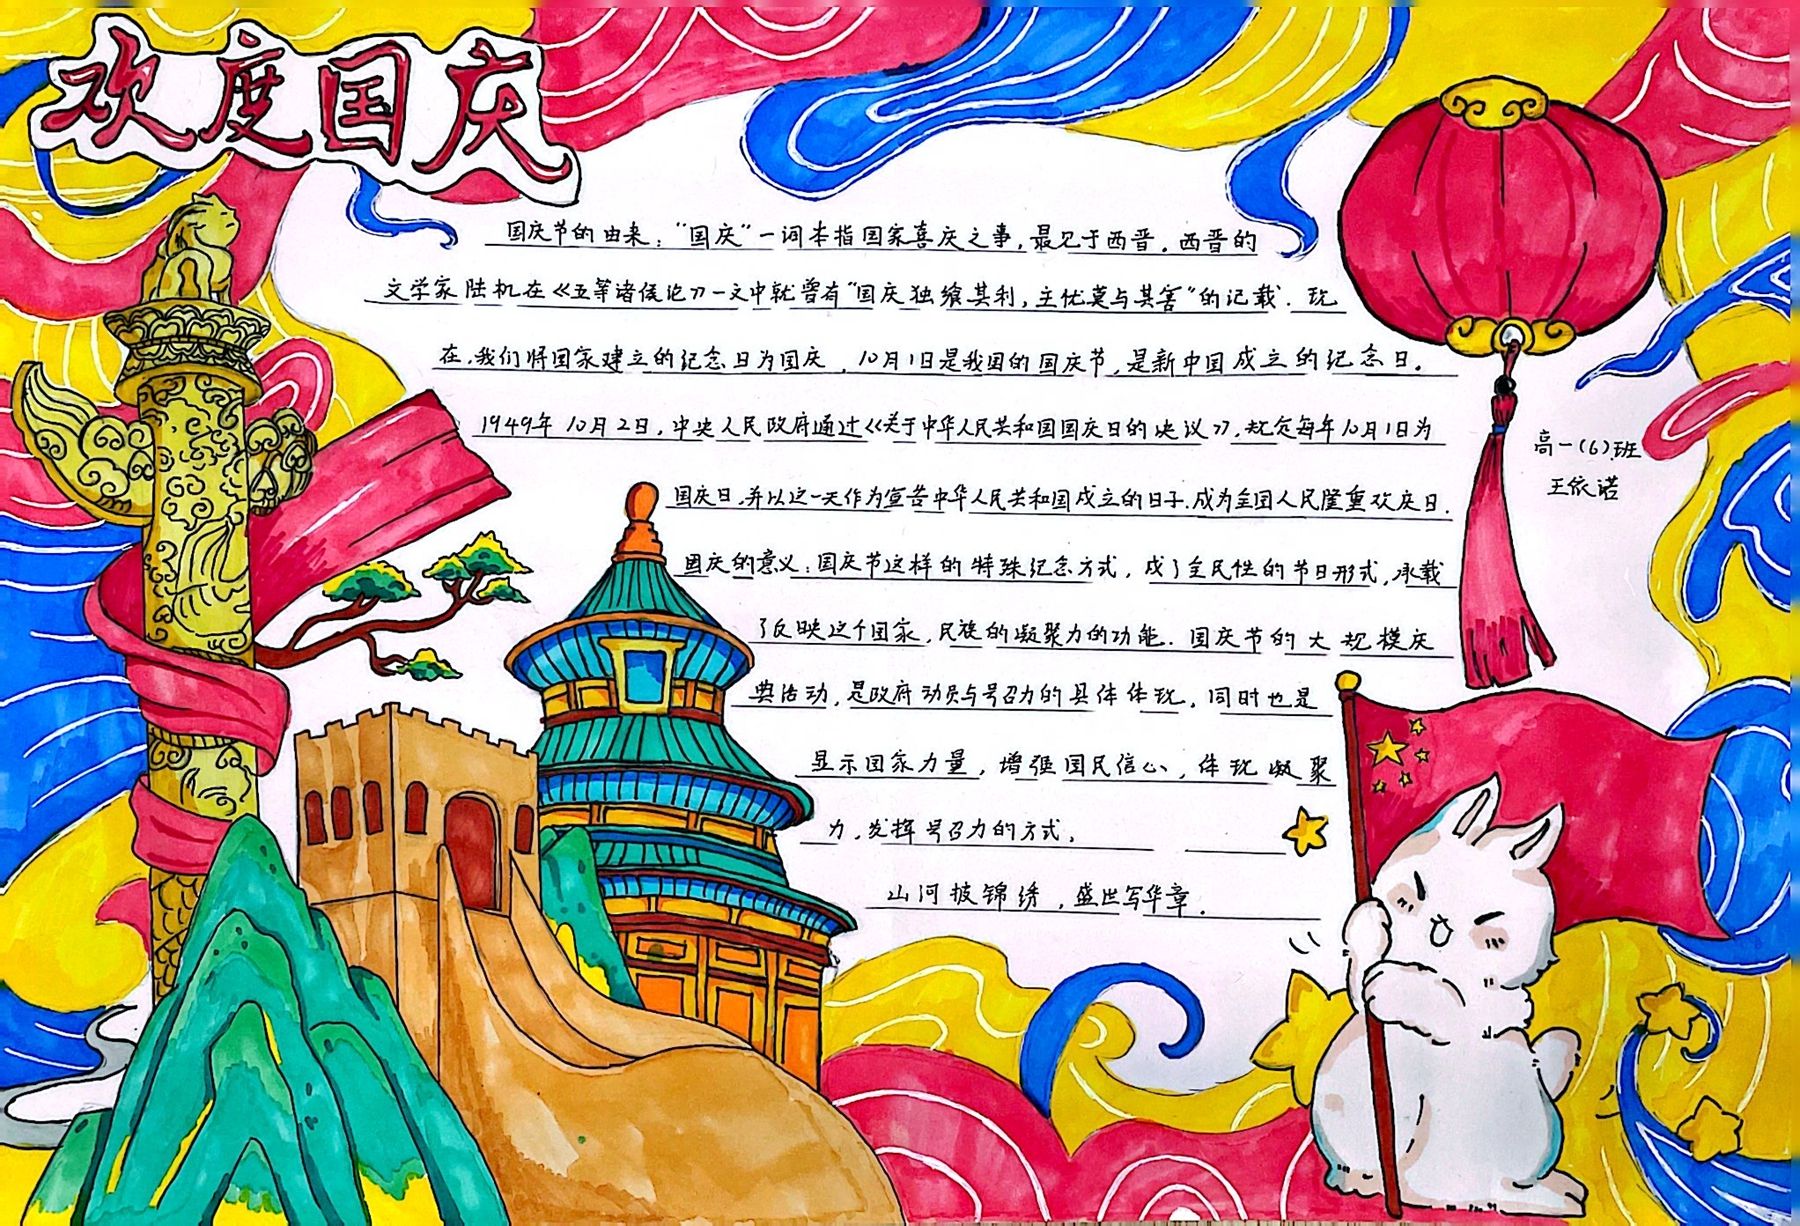 欢度国庆
国庆节的由来："国庆"一词本指国家喜庆之事，最见于西晋。西晋的
文学家陆机在《五等诸侯论》一文中就曾有"国庆独飨其利，主忧莫与其害"的记载．现
在，我们将国家建立的纪念日为国庆．10月1日是我国的国庆节，是新中国成立的纪念日。
1949年10月2日，中央人民政府通过《关于中华人民共和国国庆日的决议》，规定每年10月1日为
国庆日，并以这一天作为宣告中华人民共和国成立的日子．成为全国人民隆重欢庆日．
国庆的意义：国庆节这样的特殊纪念方式，成了全民性的节日形式，承载
了反映这个国家，民族的凝聚力的功能．国庆节的大规模庆
典活动，是政府动员与号召力的具体体现．同时也是
显示国家力量，增强国民信心，体现凝聚
力，发挥号召力的方式．
山河披锦绣，盛世写华章．
高一（6）班
王依诺